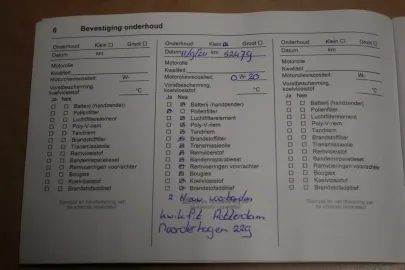 6 Bevestiging onderhoud
Onderhoud Klein Groot
Datum km
Motorolie
Kwaliteit
Motorolieviscositeit W-
Vorstbescherming,
koelvloeistof °C
Ja Nee
Batterij (handzender)
Pollenfilter
Luchtfilterelement
Poly-V-riem
Tandriem
Brandstoffilter
Transmissieolie
Remvloeistof
Bandenreparatieset
Remvoeringen voor/achter
Bougies
Koelvloeistof
Brandstofadditief
Stempel en handtekening van
Onderhoud Klein Groot
Datum km 52479
Motorolie
Kwaliteit
Motorolieviscositeit 0 W- 20
Vorstbescherming,
koelvloeistof °C
Ja Nee
Batterij (handzender)
Pollenfilter
Luchtfilterelement
Poly-V-riem
Tandriem
Brandstoffilter
Transmissieolie
Remvloeistof
Bandenreparatieset
Remvoeringen voor/achter
Bougies
Koelvloeistof
Brandstofadditief
2 Nieuw voorbanden
kwikfit Rotterdam
Noorderhagen 229
Onderhoud Klein Groot
Datum km
Motorolie
Kwaliteit
Motorolieviscositeit W-
Vorstbescherming,
koelvloeistof °C
Ja Nee
Batterij (handzender)
Pollenfilter
Luchtfilterelement
Poly-V-riem
Tandriem
Brandstoffilter
Transmissieolie
Remvloeistof
Bandenreparatieset
Remvoeringen voor/achter
Bougies
Koelvloeistof
Brandstofadditief
Stempel en handtekening van